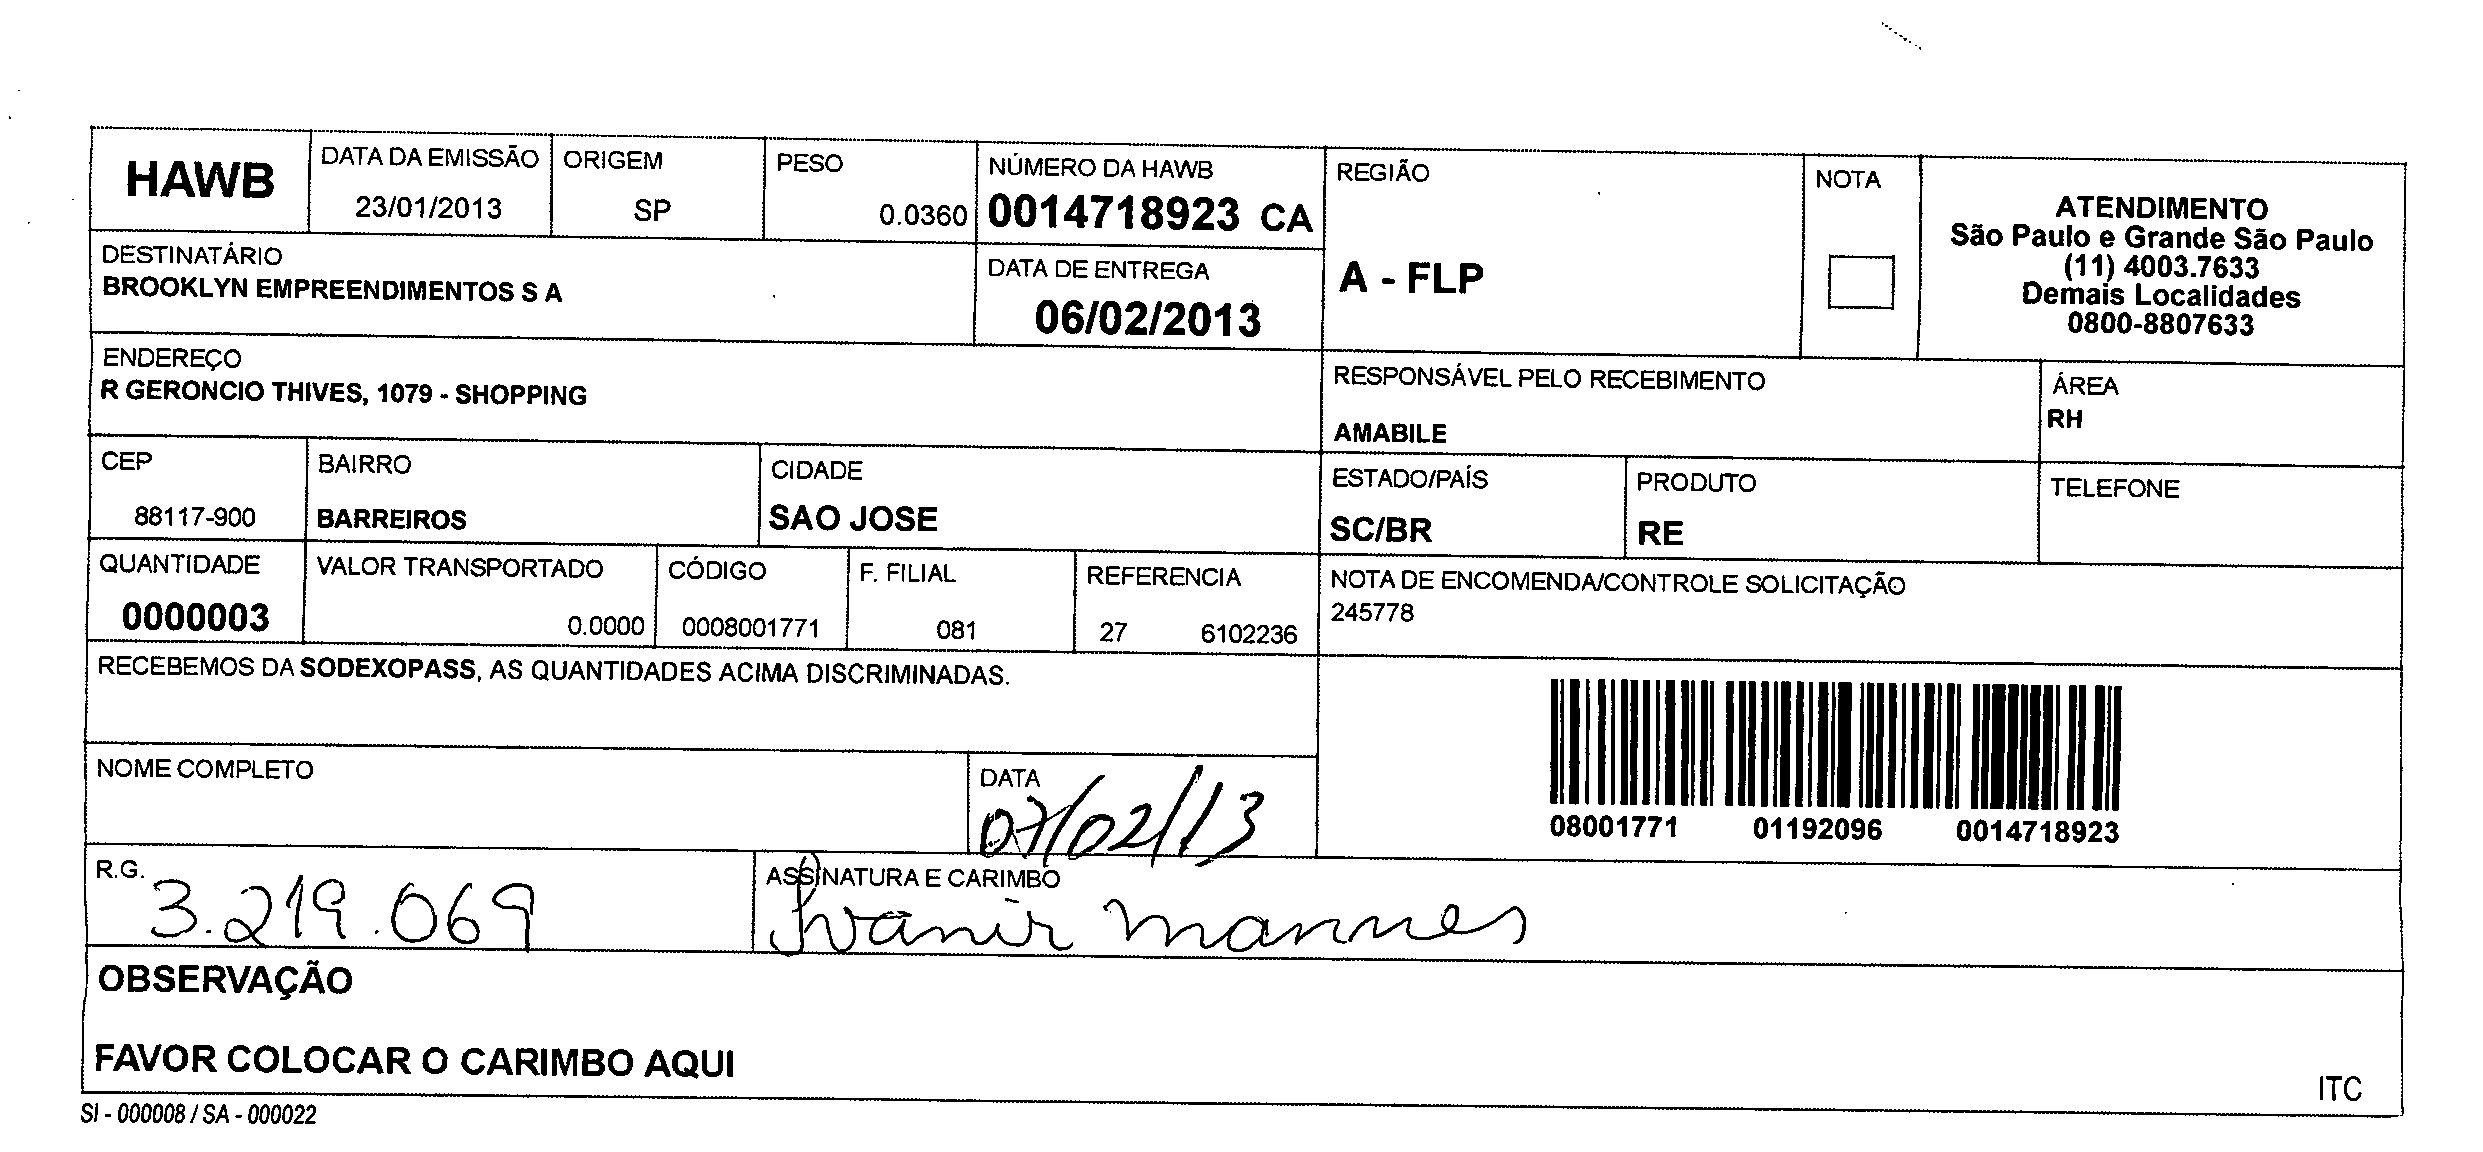 HAWB
DATA DA EMISSÃO
23/01/2013
ORIGEM
SP
PESO
0.0360
NÚMERO DA HAWB
0014718923 CA
REGIÃO
A - FLP
NOTA
ATENDIMENTO
São Paulo e Grande São Paulo
(11) 4003.7633
Demais Localidades
0800-8807633
DESTINATÁRIO
BROOKLYN EMPREENDIMENTOS S A
DATA DE ENTREGA
06/02/2013
ENDEREÇO
R GERONCIO THIVES, 1079 - SHOPPING
RESPONSÁVEL PELO RECEBIMENTO
AMABILE
ÁREA
RH
CEP
88117-900
BAIRRO
BARREIROS
CIDADE
SAO JOSE
ESTADO/PAÍS
SC/BR
PRODUTO
RE
TELEFONE
QUANTIDADE
0000003
VALOR TRANSPORTADO
0.0000
CÓDIGO
0008001771
F. FILIAL
081
REFERENCIA
27 6102236
NOTA DE ENCOMENDA/CONTROLE SOLICITAÇÃO
245778
RECEBEMOS DA SODEXOPASS, AS QUANTIDADES ACIMA DISCRIMINADAS.
08001771 01192096 0014718923
NOME COMPLETO
DATA
07/02/13
R.G.
3.219.069
ASSINATURA E CARIMBO
Ivanir Mannes
OBSERVAÇÃO
FAVOR COLOCAR O CARIMBO AQUI
ITC
SI - 000008 / SA - 000022